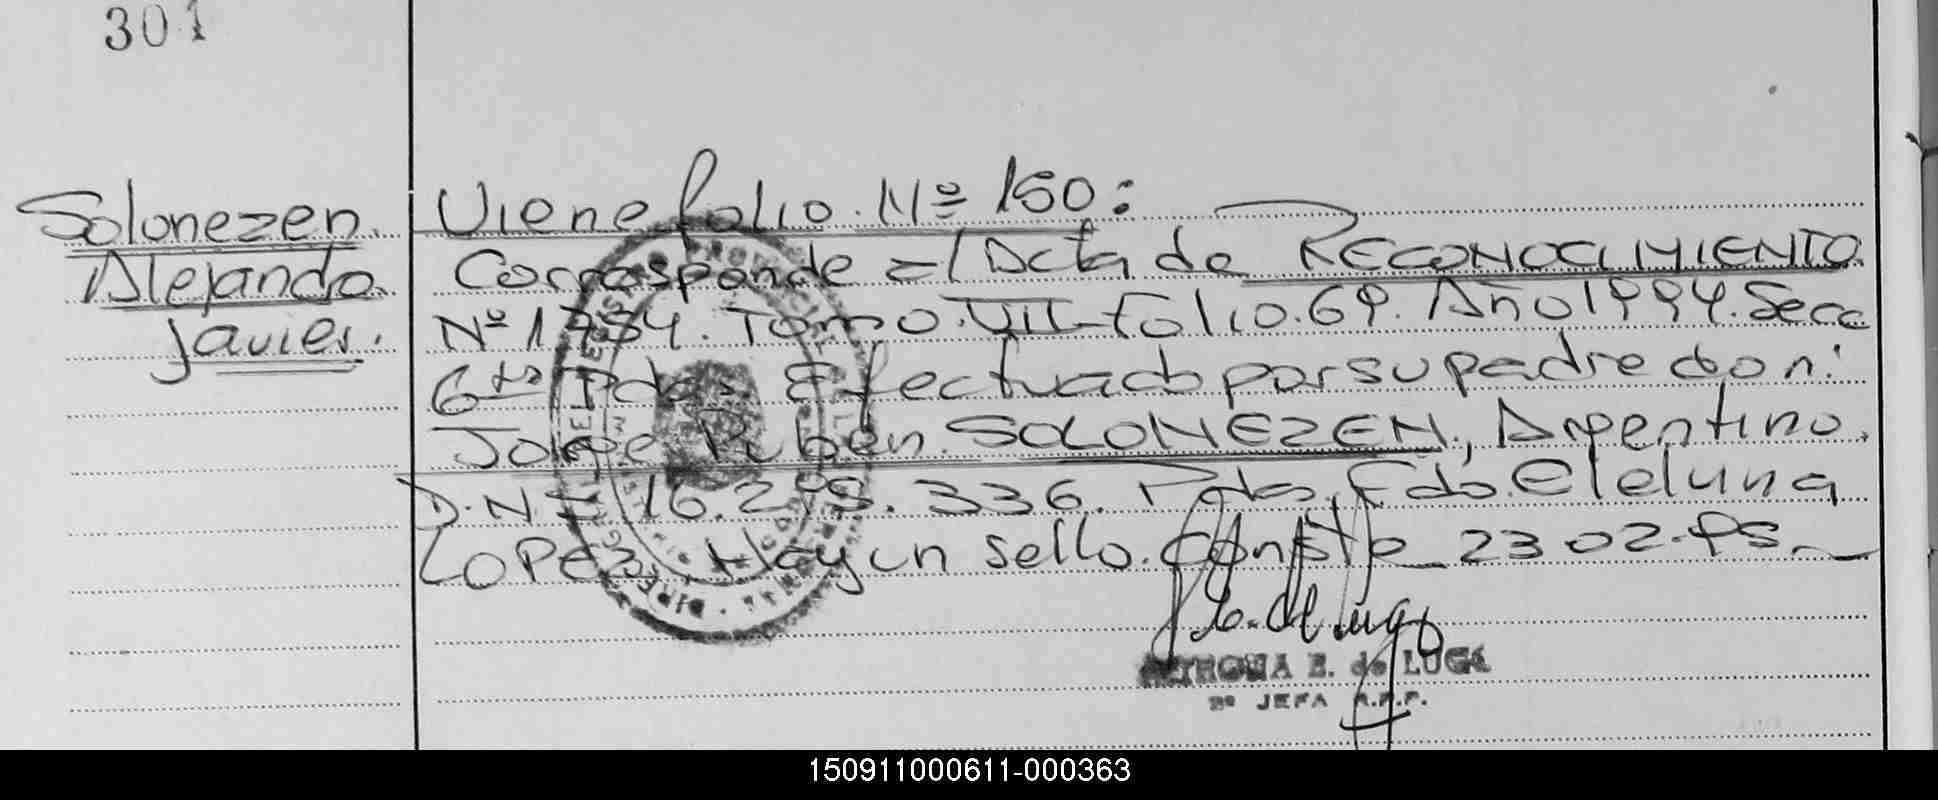 301
Solonezen
Alejando
Javier.
Viene folio Nº 150:
Corresponde al Acta de RECONOCIMIENTO
Nº 1734. Tomo VII Folio. 69. Año 1994. Secc
6ta Pdas. Efectuado por su padre don:
Jorge Ruben SOLONEZEN, Argentino,
D.N.I 16.298.336. Pdas, Fdo. Eleluna
LOPEZ. Hay un sello. Conste 2302-95.
E. de Lugo
PETRONA E. de LUGO
2º JEFA R.P.P.
150911000611-000363